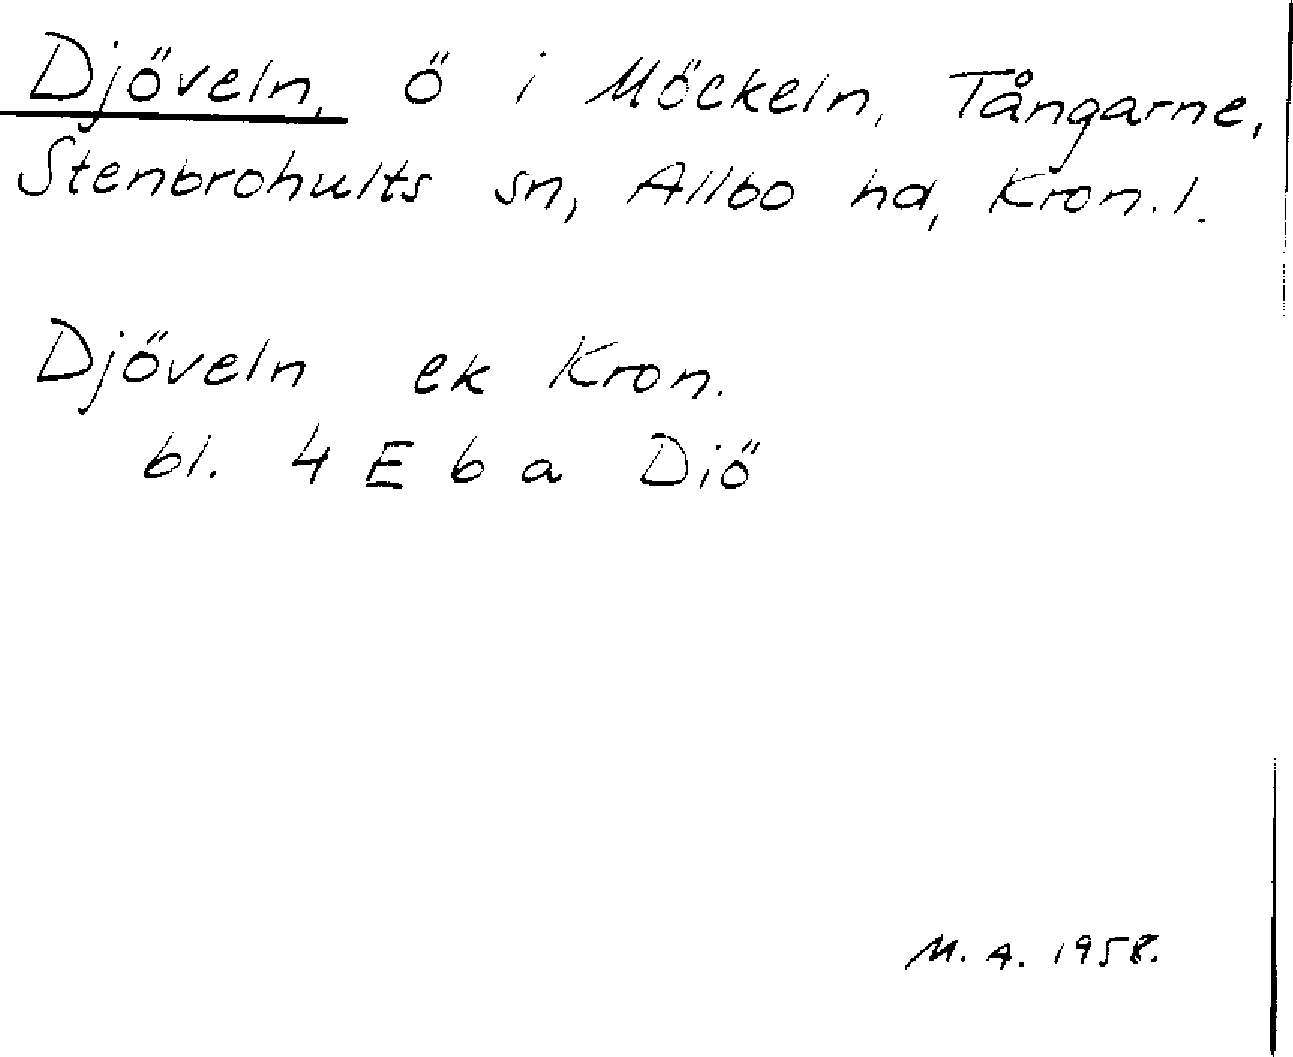 Djöveln, ö i Möckeln, Tångarne,
Stenbrohults sn, Allbo hd, Kron.l.
Djöveln ek Kron.
bl. 4 E b a Diö
M. A. 1958.